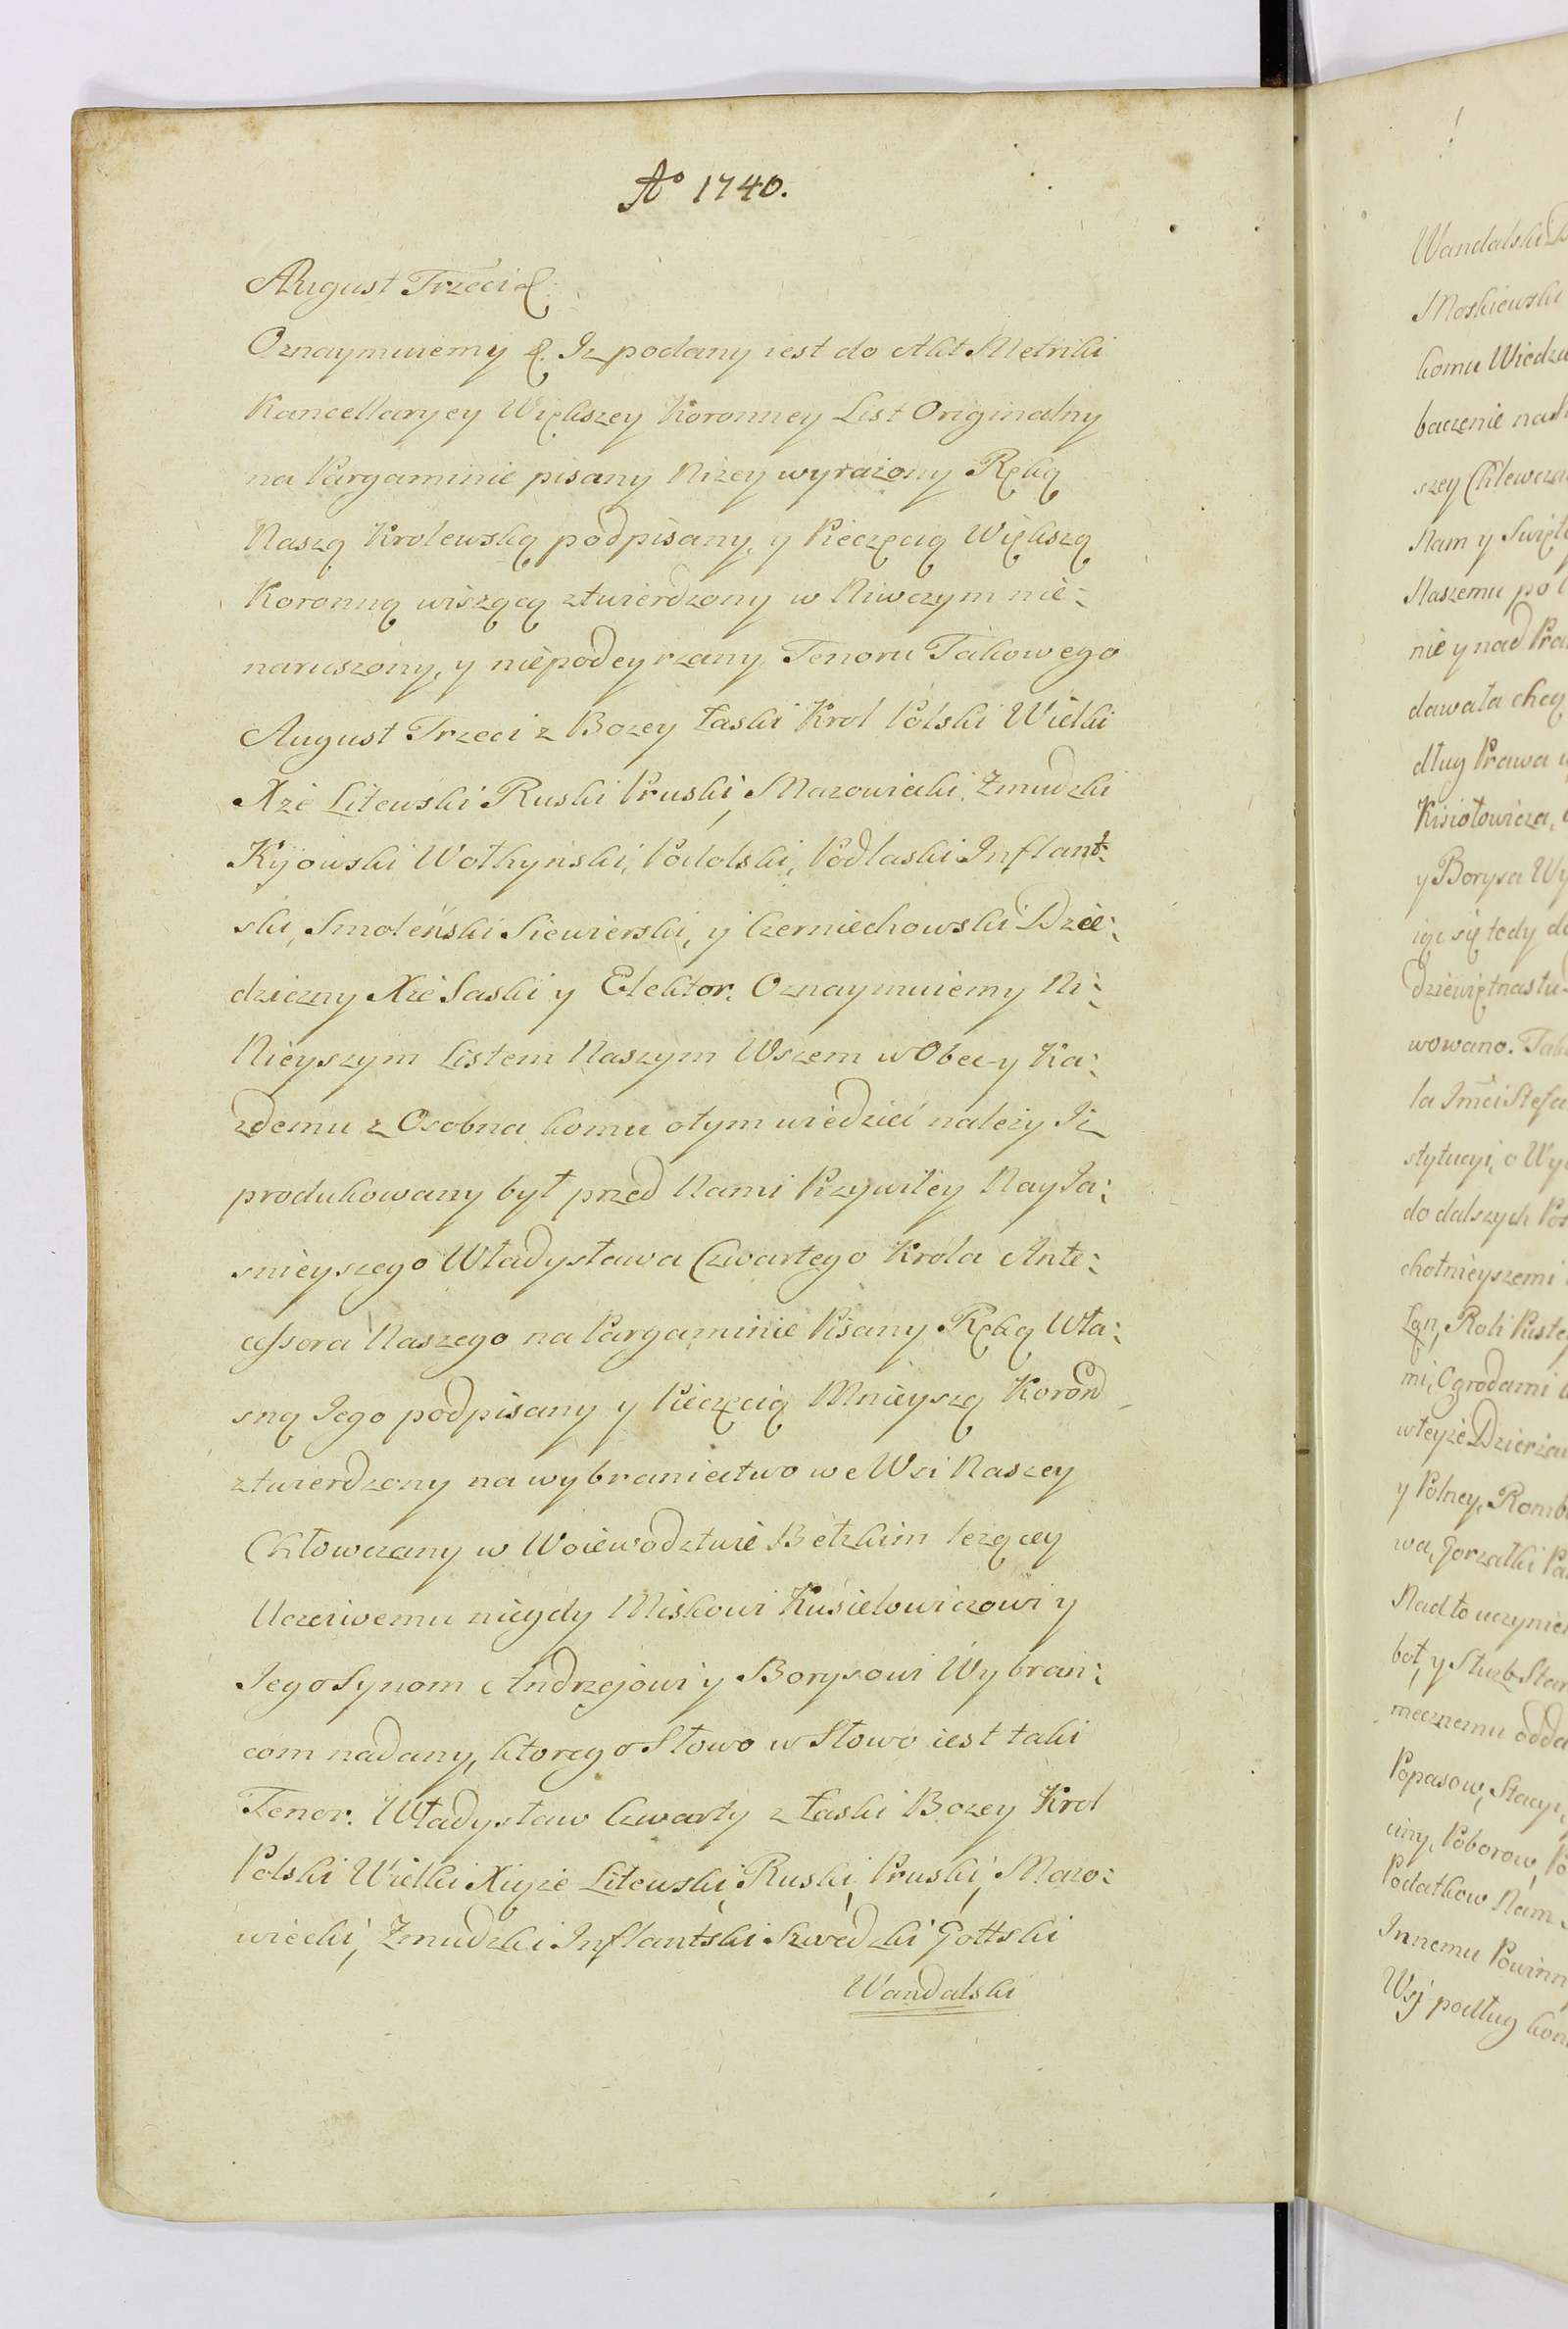 Ao 1740.
August Trzeci &.
Oznaymuiemy &. Iz podany iest do Akt Metriki
Kancellaryey Większey Koronney List Originalny
na Pargaminie pisany Nizey wyrażony Ręką
Naszą Krolewską podpisany, y Pieczęcią Większą
Koronną wiszącą ztwierdzony w Niwczym nie:
naruszony, y niepodeyrzany Tenoru Takowego
August Trzeci z Bozey Łaski Krol Polski Wielki
Xże Litewski Ruski Pruski, Mazowiecki, Zmudzki
Kijowski Wołhyński, Podolski, Podlaski Inflant:
ski, Smoleński Siewierski, y Czerniechowski Dzie:
dziczny Xże Saski y Elektor. Oznaymuiemy Ni:
Nieyszym Listem Naszym Wszem w Obec y Ka:
zdemu z Osobna komu otym wiedzieć należy Iż
produkowany był przed Nami Przywiley Nayia:
snieyszego Władysława Czwartego Króla Ante:
cessora Naszego na Pargaminie Pisany Ręką Wła:
sną Iego podpisany y Pieczęcią Mnieyszą Koron
ztwierdzony na wybraniectwo we Wsi Naszey
Chłowczany w Woiewodztwie Bełzkim leżącey
Uczciwemu niegdy Miskowi Kusielowiczowi y
Iego Synom Andrzejowi y Borysowi Wybran:
com nadany, ktorego Słowo w Słowo iest taki
Tenor. Władysław Czwarty z Łaski Bozey Krol
Polski Wielki Xiąże Litewski, Ruski, Pruski, Mazo:
wiecki, Zmudzki Inflantski Szwedzki Gottski
Wandalski
Wandalski
Moskiewski
komu Wiedzi
baczenie na
szey Chlewcza
Nam y Swięte
Naszemu po
nie y nad Pra
dawała chcą
dług Prawa
Kisiołowicza,
y Borysa Wy
iąc się tedy do
dziewiętnastu
wowano. Tak
la Imci Stefa
stytucyi, o Wy
do dalszych
chotnieyszemi
Łan, Roli Puste
mi, Ogrodami
wteyże Dzierża
y Polney, Romb
wa, Gorzałki
Nadto uczynie
bot, y Służb Star
mecznemu odda
Popasow, Stacyi,
Poborow,
Podatkow Nam
Innemu Powinn
Wsj podług